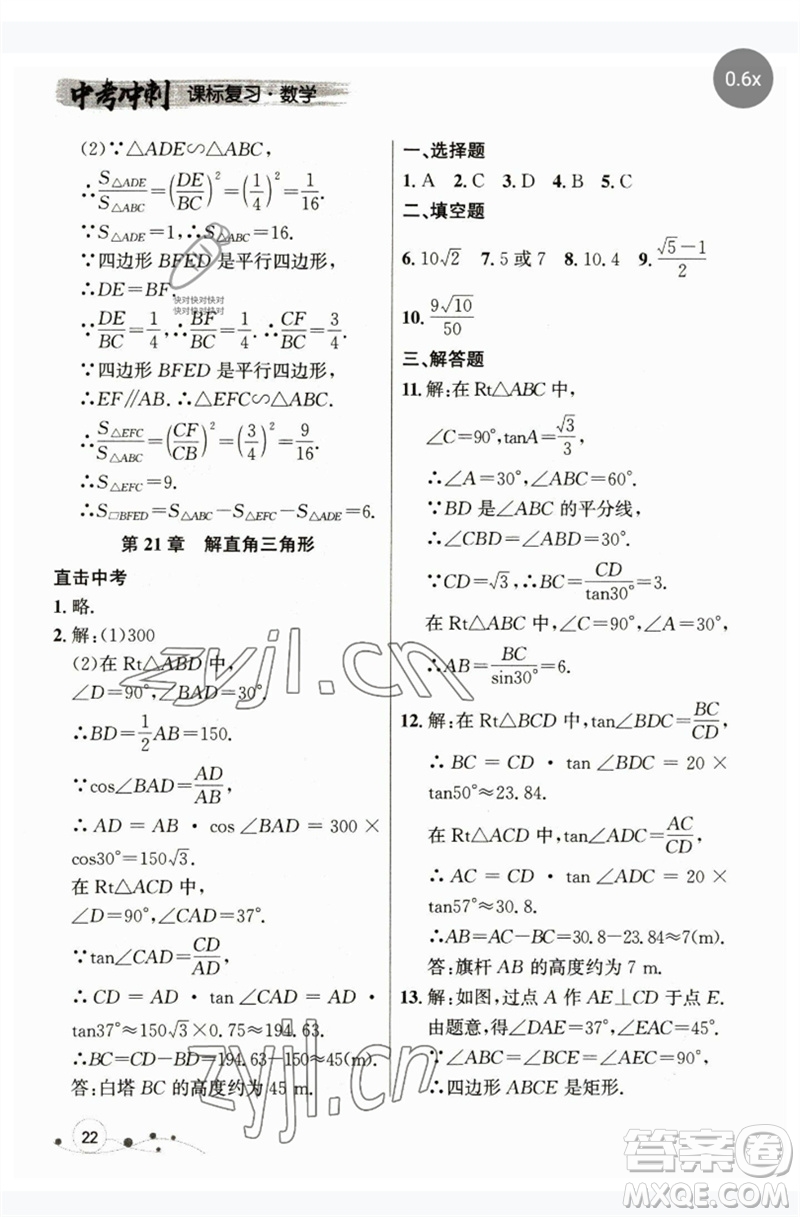 0.6x
中考冲刺 课标复习·数学
(2)∵△ADE∽△ABC,
∴S△ADE/S△ABC=(DE/BC)²=(1/4)²=1/16.
∵S△ADE=1,∴S△ABC=16.
∵四边形 BFED 是平行四边形,
∴DE=BF.
快对快对快对
快对快对快对
∵DE/BC=1/4,∴BF/BC=1/4.∴CF/BC=3/4.
∵四边形 BFED 是平行四边形,
∴EF∥AB.∴△EFC∽△ABC.
∴S△EFC/S△ABC=(CF/CB)²=(3/4)²=9/16.
∴S△EFC=9.
∴S□BFED=S△ABC-S△EFC-S△ADE=6.
第 21 章 解直角三角形
直击中考
1.略.
2.解:(1)300
(2)在 Rt△ABD 中,
∠D=90°,∠BAD=30°.
∴BD=1/2AB=150.
∵cos∠BAD=AD/AB,
∴AD=AB·cos∠BAD=300×
cos30°=150√3.
在 Rt△ACD 中,
∠D=90°,∠CAD=37°.
∵tan∠CAD=CD/AD,
∴CD=AD·tan∠CAD=150√3·
tan37°≈150√3×0.75≈194.63.
∴BC=CD-BD=194.63-150≈45.
答:白塔 BC 的高度约为 45 m.
22
一、选择题
1.A 2.C 3.D 4.B 5.C
二、填空题
6.10√2 7.5 或 7 8.10.4 9.(√5-1)/2
10.9√10/50
三、解答题
11.解:在 Rt△ABC 中,
∠C=90°,tanA=√3/3,
∴∠A=30°,∠ABC=60°.
∵BD 是∠ABC 的平分线,
∵CD=√3,∴BC=CD/tan30°=3.
在 Rt△ABC 中,∠A=30°.
∴AB=BC/sin30°=6.
12.解:在 Rt△BCD 中,tan∠BDC=BC/CD,
∴BC=CD·tan∠BDC=20×
tan50°≈23.84.
在 Rt△ACD 中,tan∠ADC=AC/CD,
∴AC=CD·tan∠ADC=20×
tan57°≈30.8.
∴AB=AC-BC=30.8-23.84≈7(m).
答:旗杆 AB 的高度约为 7 m.
13.解:如图,过点 A 作 AE⊥CD 于点 E.
由题意,得∠DAE=37°,∠EAC=45°.
∵∠ABC=∠BCE=∠AEC=90°,
∴四边形 ABCE 是矩形.
zyjl.cn
zyjl.cn
答案卷
MXQE.COM